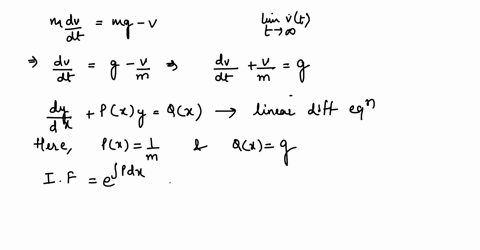 m dv/dt = mg - v    lim t→∞ v(t)
⇒ dv/dt = g - v/m ⇒ dv/dt + v/m = g
dy/dx + P(x)y = Q(x) → linear diff eqⁿ
Here, P(x) = 1/m & Q(x) = g
I.F = e^∫Pdx